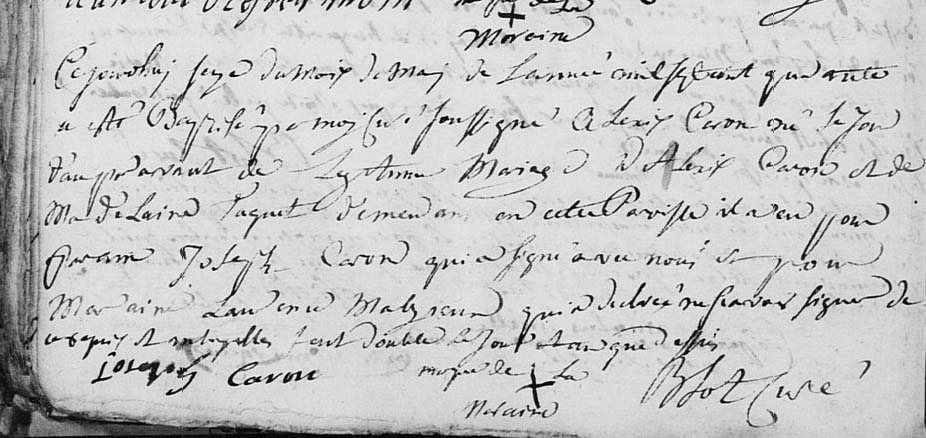 marque de la
Moraine
Cejourdhuj seize du mois de Maj de Lannee mil sept cent quarante
a esté Baptisé par moj Curé soussigné Alexis Caron né le Jour
d'auparavant de Legitime Mariage d Alexis Caron et de
Madelaine Paquet demeurans en cette Paroisse il a eu pour
Parain Joseph Caron qui a signé avec nous et pour
Meraine Laurence qui a declaré ne scavoir signer de
ce requis et interpellés fait double le Jour et an que dessus
Joseph Caron marque de la
Moraine
Curé